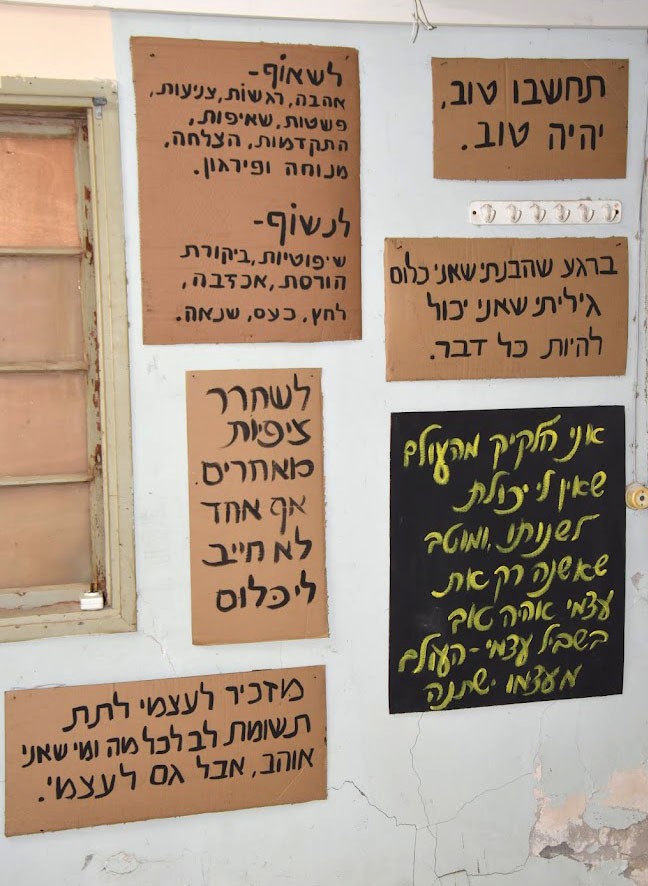 תחשבו טוב,
יהיה טוב.
לשאוף-
אהבה, רגשות, צניעות,
פשטות, שאיפות,
התקדמות, הצלחה,
מנוחה ופירגון.
לנשוף-
שיפוטיות, ביקורת
הורסת, אכזבה,
לחץ, כעס, שנאה.
ברגע שהבנתי שאני כלום
גיליתי שאני יכול
להיות כל דבר.
לשחרר
ציפיות
מאחרים
אף אחד
לא חייב
לי כלום
אני חלקיק מהעולם
שאין לי יכולת
לשנותו, ומוטב
שאשנה רק את
עצמי אהיה טוב
בשביל עצמי - העולם
מעצמו ישתנה
מזכיר לעצמי לתת
תשומת לב לכל מה ומי שאני
אוהב, אבל גם לעצמי.